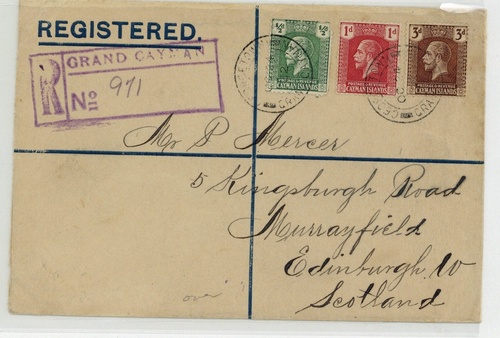 REGISTERED.
GRAND CAYMAN
R No 971
½d ½d
POSTAGE & REVENUE
CAYMAN ISLANDS
1d 1d
POSTAGE & REVENUE
CAYMAN ISLANDS
3d 3d
POSTAGE & REVENUE
CAYMAN ISLANDS
Mr P Mercer
5 Kingsburgh Road
Murrayfield
Edinburgh. W
Scotland
over